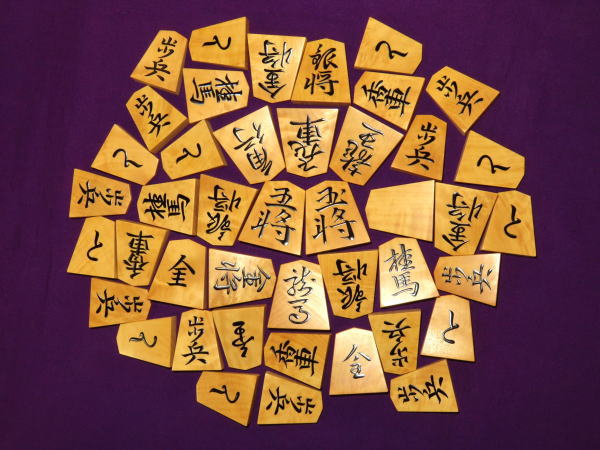 歩兵
と
金将
銀将
と
桂馬
香車
歩兵
歩兵
角行
飛車
龍王
歩兵
と
と
と
歩兵
桂馬
銀将
王将
玉将
金将
と
と
香車
全
金将
龍馬
銀将
桂馬
歩兵
歩兵
と
歩兵
香車
歩兵
と
と
歩兵
歩兵